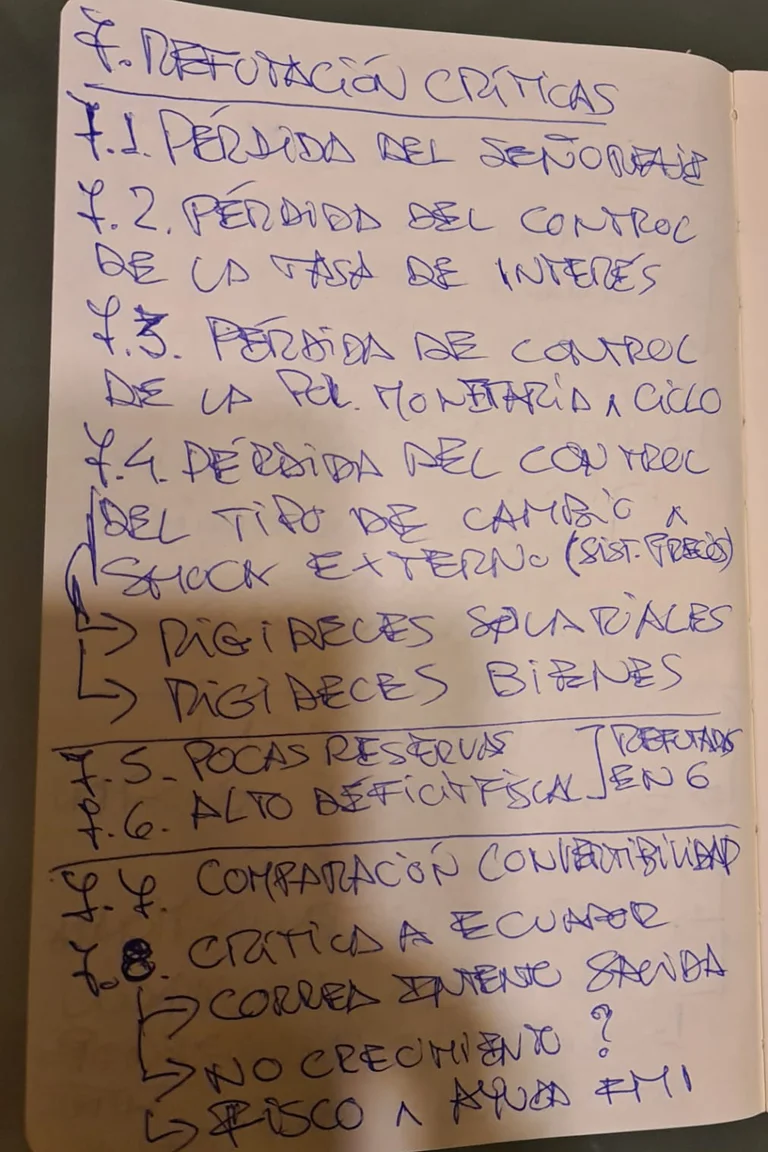 7. REFUTACIÓN CRÍTICAS
7.1. PÉRDIDA DEL SEÑOREAJE
7.2. PÉRDIDA DEL CONTROL
DE LA TASA DE INTERÉS
7.3. PÉRDIDA DE CONTROL
DE LA POL. MONETARIA ∧ CICLO
7.4. PÉRDIDA DEL CONTROL
DEL TIPO DE CAMBIO ∧
SHOCK EXTERNO (SIST. PRECIOS)
→ RIGIDECES SALARIALES
→ RIGIDECES BIENES
7.5. POCAS RESERVAS ] REFUTADAS
7.6. ALTO DÉFICIT FISCAL ] EN 6
7.7. COMPARACIÓN CONVERTIBILIDAD
7.8. CRÍTICA A ECUADOR
→ CORREA INTENTO SALIDA
→ NO CRECIMIENTO ?
→ FISCO ∧ AYUDA FMI